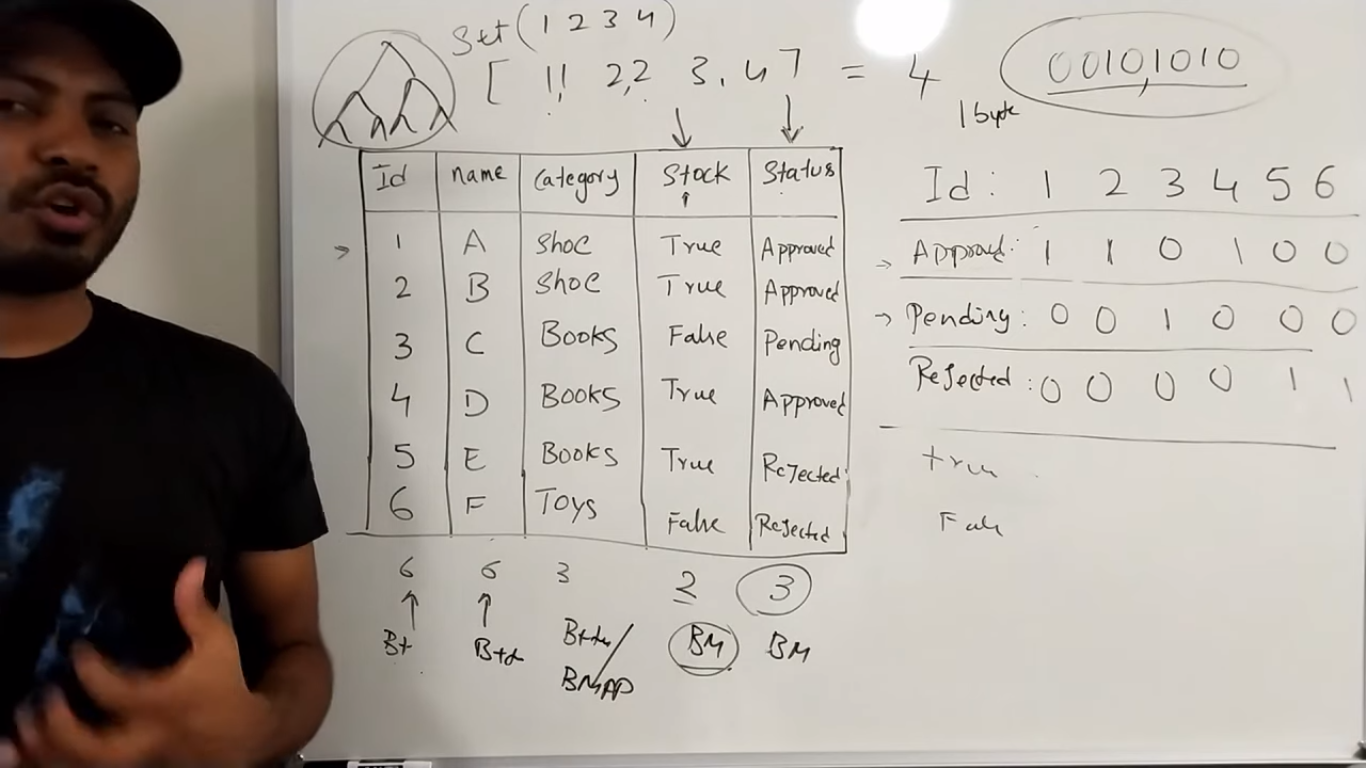 Set(1 2 3 4)
[ 1, 1, 2, 2, 3, 4 ] = 4
00101010
1 byte
Id name Category Stock Status
1 A Shoe True Approved
2 B Shoe True Approved
3 C Books False Pending
4 D Books True Approved
5 E Books True Rejected
6 F Toys False Rejected
6 6 3 2 3
BM BM
Id: 1 2 3 4 5 6
Approved: 1 1 0 1 0 0
Pending: 0 0 1 0 0 0
Rejected: 0 0 0 0 1 1